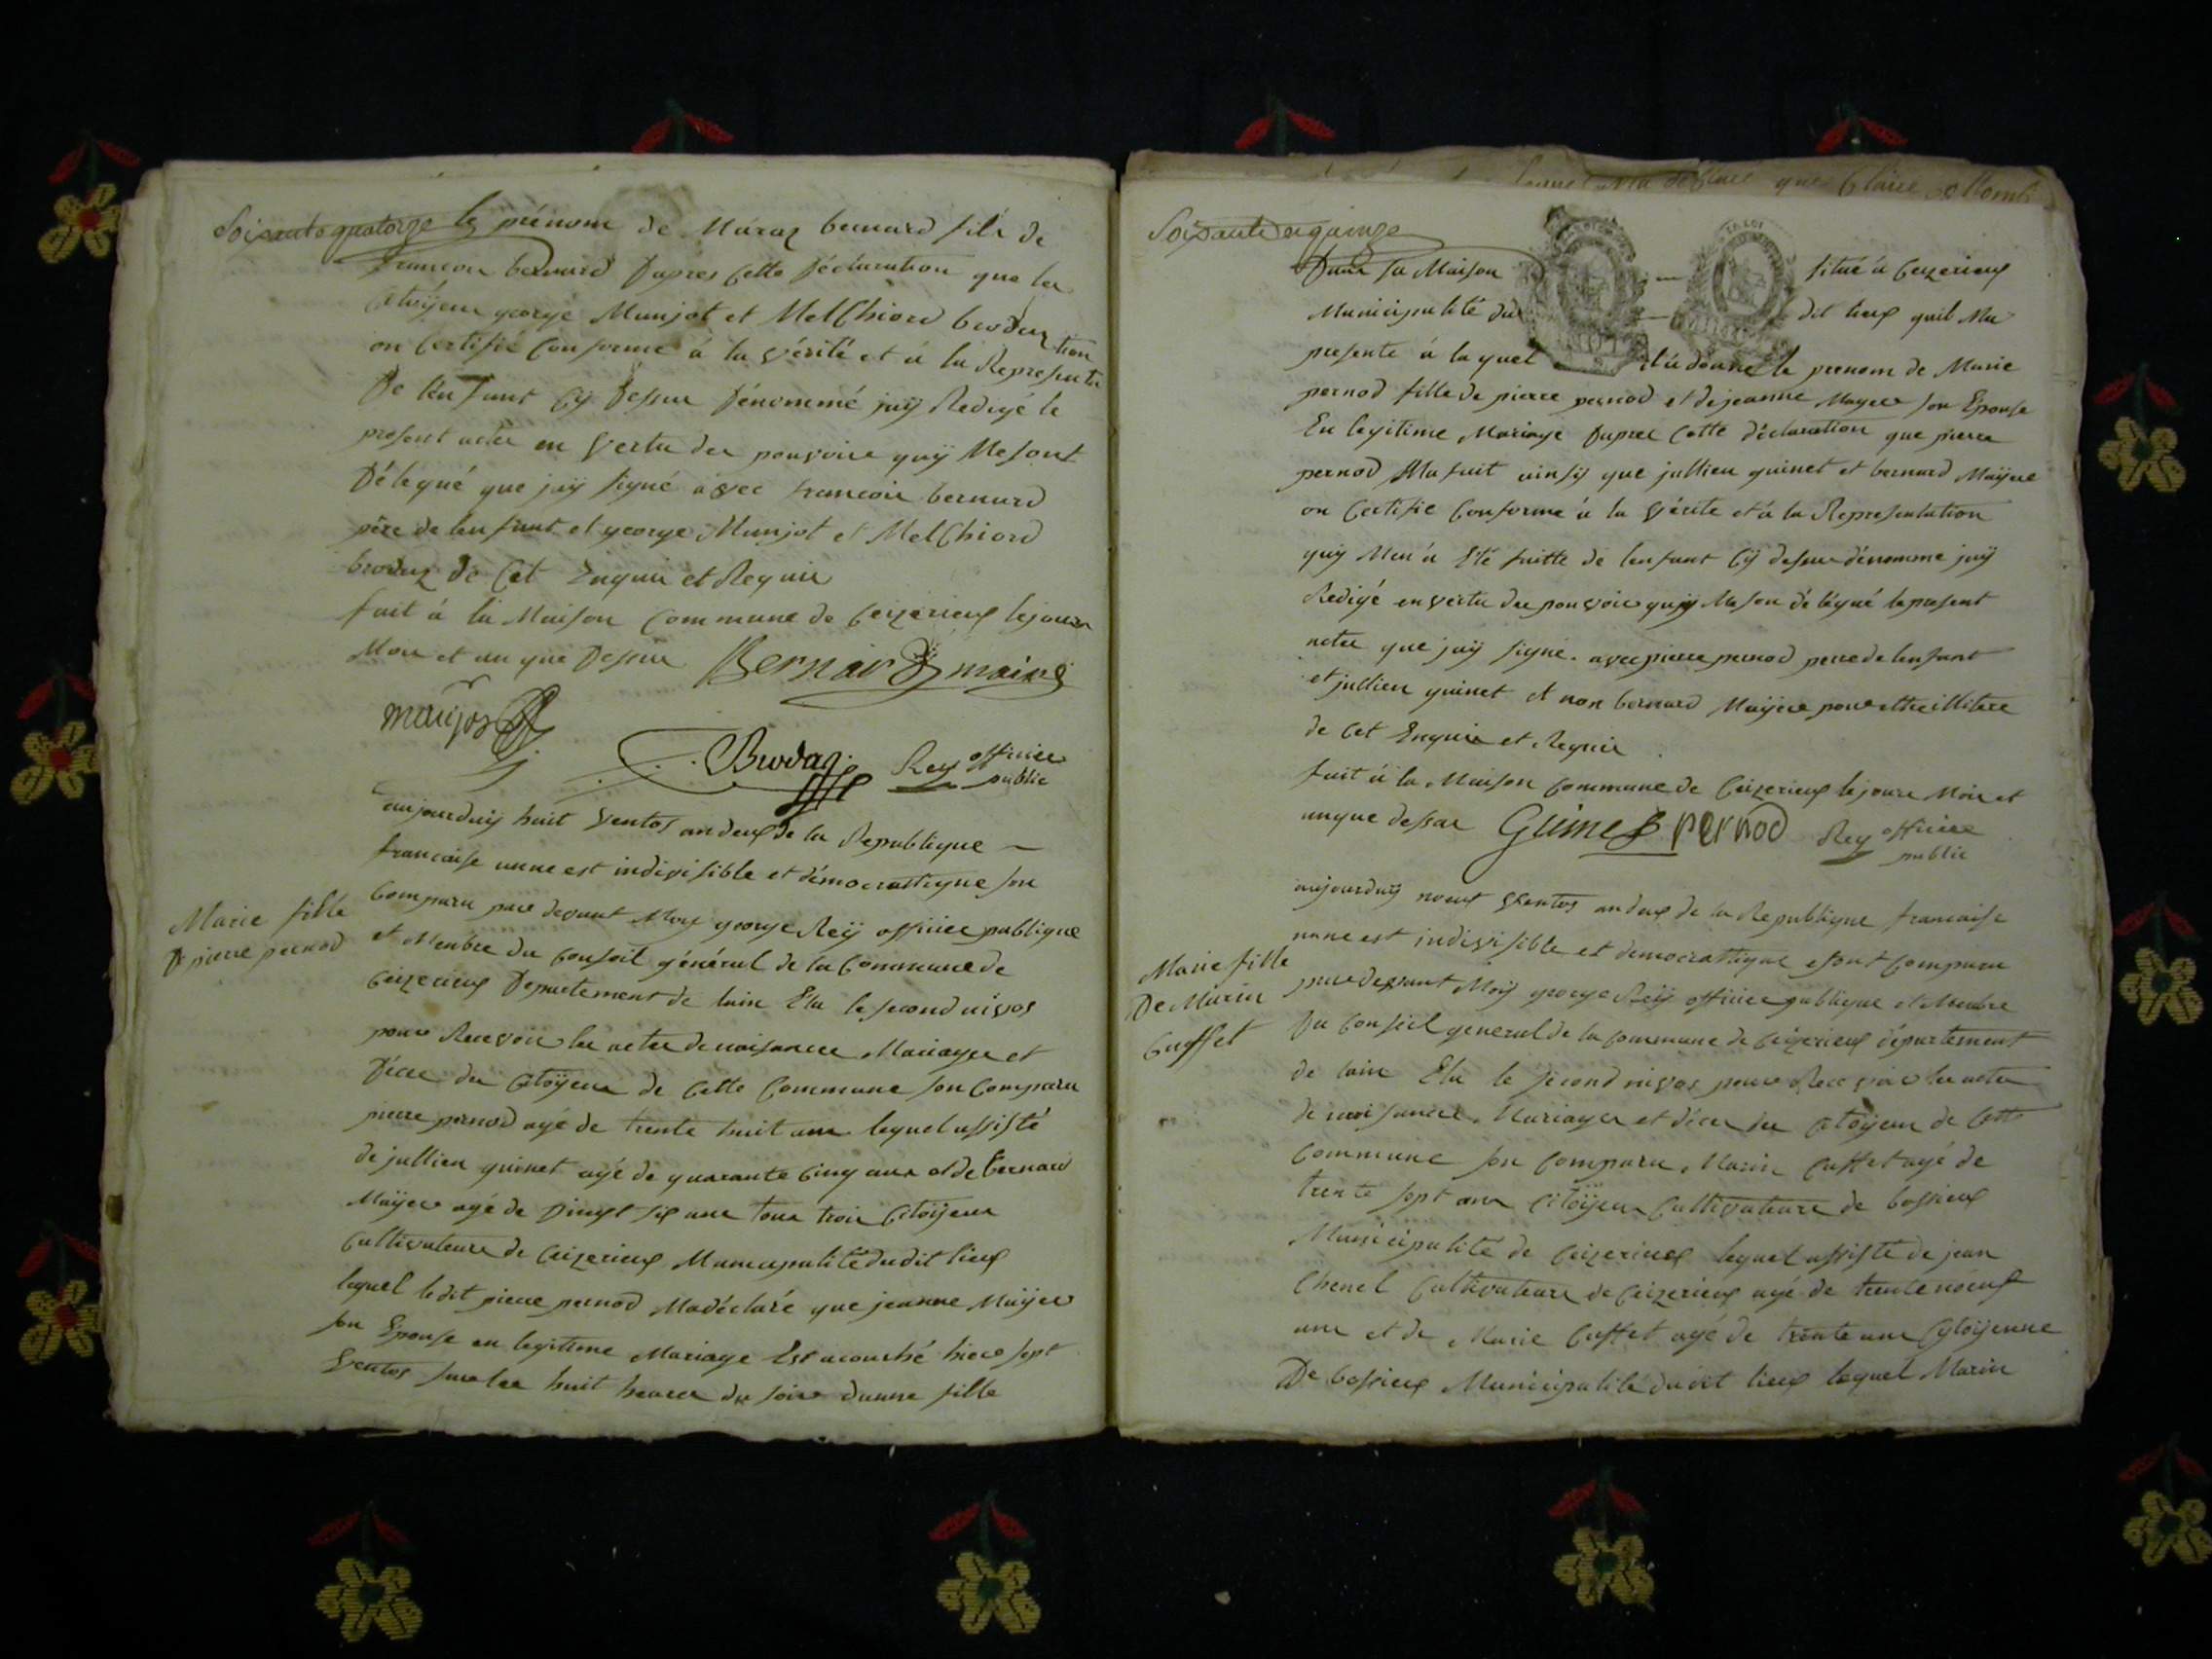 Soixante quatorze le prénom de Maraz bernard fils de
francois bernard Dapres Cette Déclaration que les
Citoÿens george Munjot et MelChiord brodaz
on Certifié Conforme à la vérité et à la Representation
De lenfant Cy Dessus Dénommé jaÿ Redigé le
present acte en Vertu des pouvoirs quÿ Mesont
Délégué que jaÿ signé avec francois bernard
père de lenfant et george Munjot et MelChiord
brodaz de Cet Enquis et Requis
fait à la Maison Commune de Ceizerieux lejours
Mois et an que Dessus Bernard maire
maujot
Brodaz Rey officier
public
aujourduÿ huit Ventos an deux de la Republique
francaise unne est indivisible et démocrattique son
Marie fille
D pierre pernod
Comparu pare devant Moy george Reÿ officier publique
et Membre du Conseil général de la Commune de
Ceizerieux Departement de lain Elu le second nivos
pour Recevoir les actes de naisances Mariages et
Déces des Citoÿens de Cette Commune son Comparu
pierre pernod agé de trente huit ans lequel assisté
de jullien guinet agé de quarante Cinq ans et de bernard
Maÿer agé de Vingt six ans tous trois Citoÿens
Cultivateurs de Ceizerieux Municipalité dudit lieux
lequel ledit pierre pernod Madéclaré que jeanne Maÿer
son Epouse en legittime Mariage Est acouché hiere sept
Ventos sur les huit heures du soire dunne fille
Soixante et quinze
Dans sa Maison situé à Ceizerieux
Municipalité du dit lieux quil Ma
presente à laquel il à donné le prenom de Marie
pernod fille de pierre pernod et de jeanne Mayer son Epouse
En legitime Mariage Dapres Cette déclaration que pierre
pernod Ma fait ainsÿ que jullien guinet et bernard Maÿer
on Certifié Conforme à la Vérite et à la Representation
quÿ Men à Eté faitte de lenfant Cÿ desus dénomme jaÿ
Redigé en vertu des pouvoirs quÿ Me son délégué le present
actes que jaÿ signé avec pierre pernod pere de lenfant
et jullien guinet et non bernard Maÿere pour ettre illitere
de Cet Enquis et Requis
fait à la Maison Commune de Ceizerieux lejours Mois et
anque dessus Guinet pernod Rey officier
public
aujourduÿ noeuf Ventos an deux de la Republique francaise
Marie fille
De Marin
Cuffet
unne est indivisible et democrattique esont Comparu
pare devant Moÿ george Reÿ officier publique et Membre
Du Conseil general de la Commune de Ceizerieux département
de lain Elu le second nivos pour Recevoir les actes
de naisances, Mariages et déces des Citoÿens de Cette
Commune son Comparu Marin Cuffet agé de
trente sept ans Citoÿen Cultivateure de bossieux
Municipalité de Ceizerieux lequel assisté de jean
Chenel Cultivateure de Ceizerieux agé de trente noeuf
ans et de Marie Cuffet agé de trente ans Cytoÿenne
De bossieux Municipalité dudit lieux lequel Marin